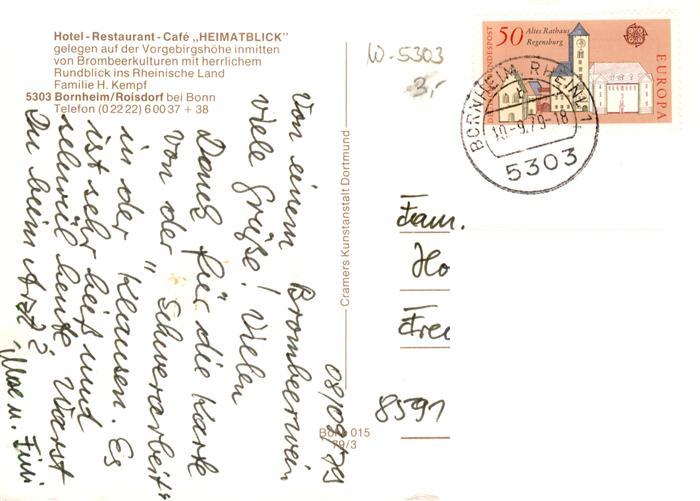 Hotel - Restaurant - Café „HEIMATBLICK"
gelegen auf der Vorgebirgshöhe inmitten
von Brombeerkulturen mit herrlichem
Rundblick ins Rheinische Land
Familie H. Kempf
5303 Bornheim/Roisdorf bei Bonn
Telefon (0 22 22) 6 00 37 + 38
W-5303
3,-
50 Altes Rathaus
Regensburg
DEUTSCHE BUNDESPOST
EUROPA
BORNHEIM, RHEINL 1
10.-9.79-18
5303
08/09/79
Von einem Brombeerwein
viele Grüße! Vielen
Dank für die Karte
von der "Schwerarbeit"
in der "Klausen. Es
ist sehr heiß und
schwül heute. Warst
Du beim Arzt?
Cramers Kunstanstalt Dortmund
Bo 015
79/3
Fam.
Ho
8591